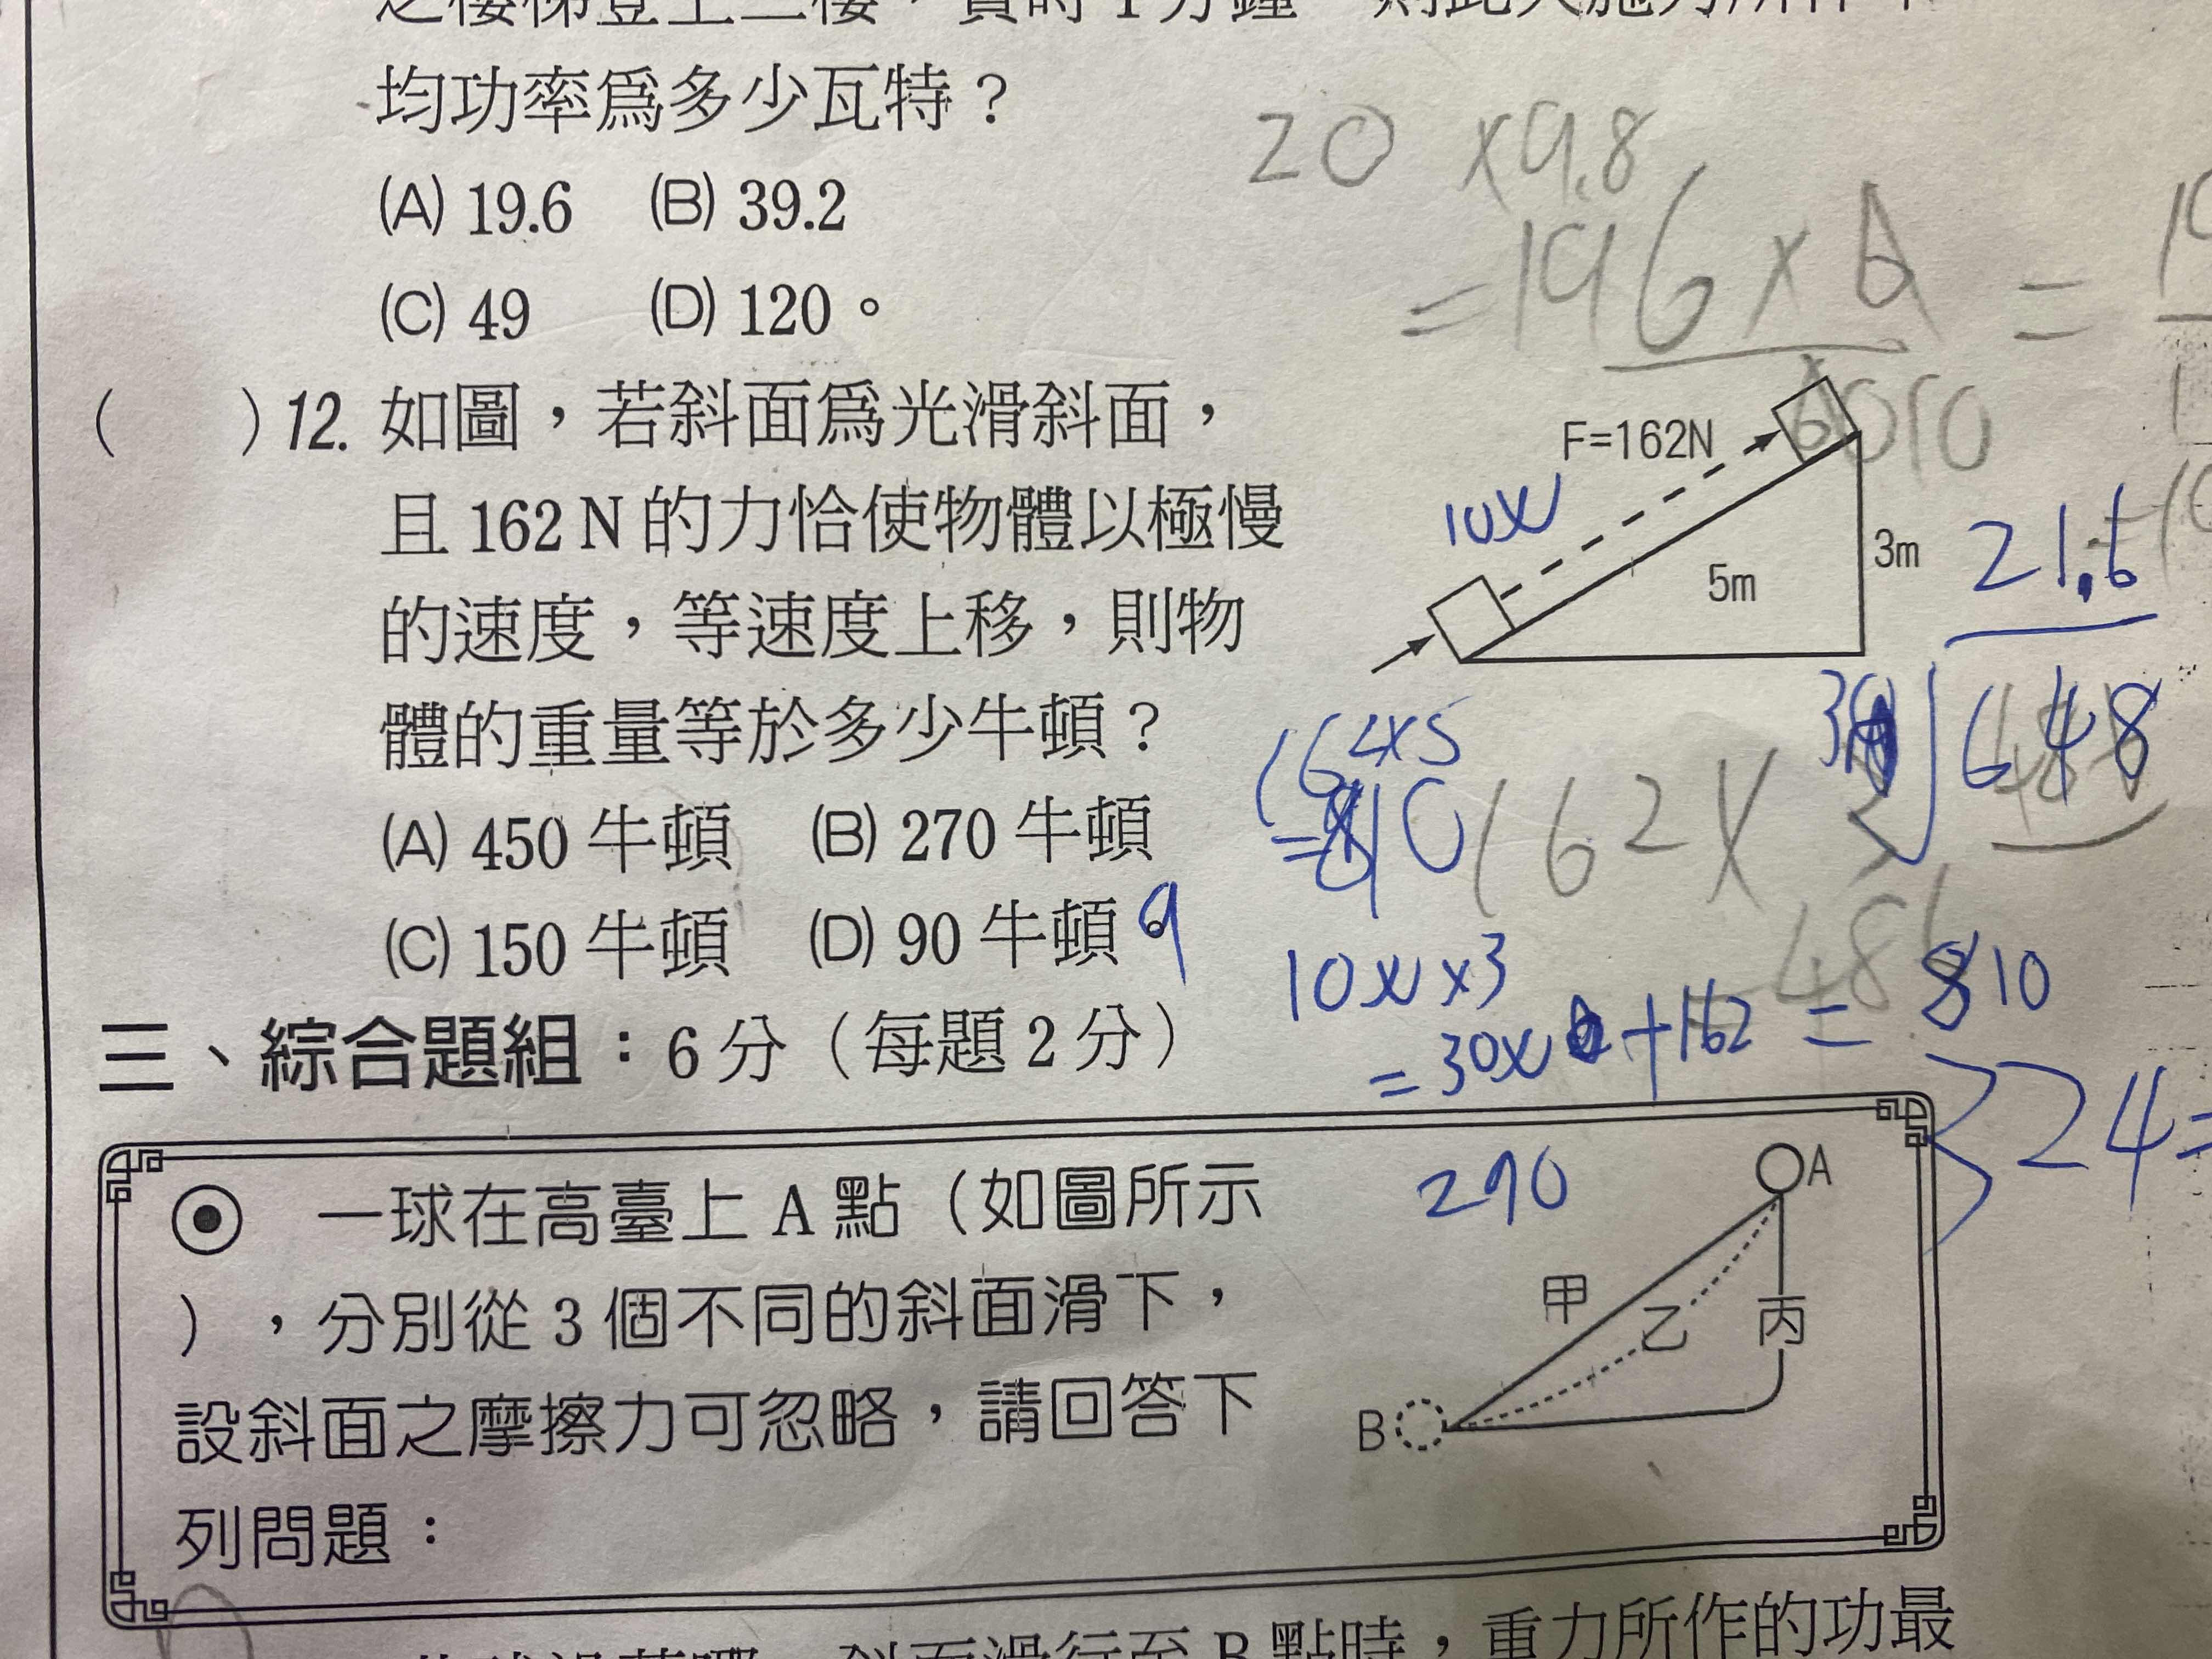 之樓梯登上二樓，費時1分鐘
均功率爲多少瓦特？
(A) 19.6 (B) 39.2
(C) 49 (D) 120。
( )12. 如圖，若斜面爲光滑斜面，
且 162 N 的力恰使物體以極慢
的速度，等速度上移，則物
體的重量等於多少牛頓？
(A) 450 牛頓 (B) 270 牛頓
(C) 150 牛頓 (D) 90 牛頓。
F=162N
5m
3m
20 ×9.8
=196×6
10X
21.6
648
162×5
=810
162×
10x×3
=30x+162=810
324=
290
三、綜合題組：6 分（每題 2 分）
⊙ 一球在高臺上 A 點（如圖所示
），分別從 3 個不同的斜面滑下，
設斜面之摩擦力可忽略，請回答下
列問題：
A
甲
乙
丙
B
斜面滑行至 B 點時，重力所作的功最